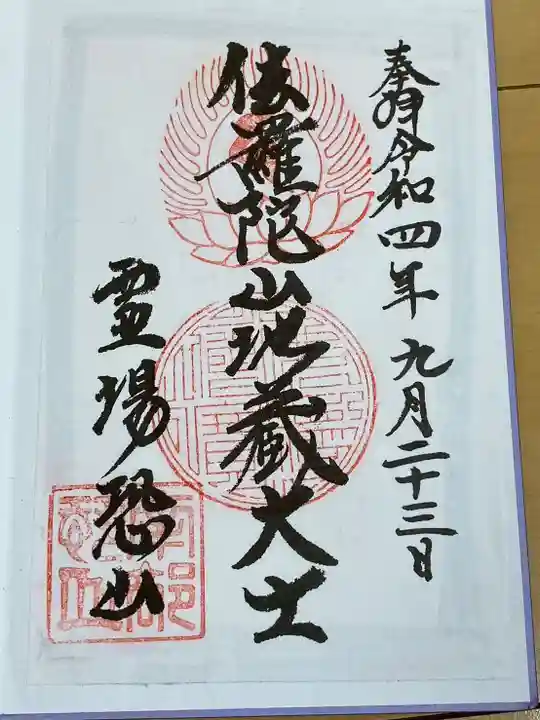 奉拝令和四年九月二十三日
伽羅陀山地蔵大士
霊場恐山